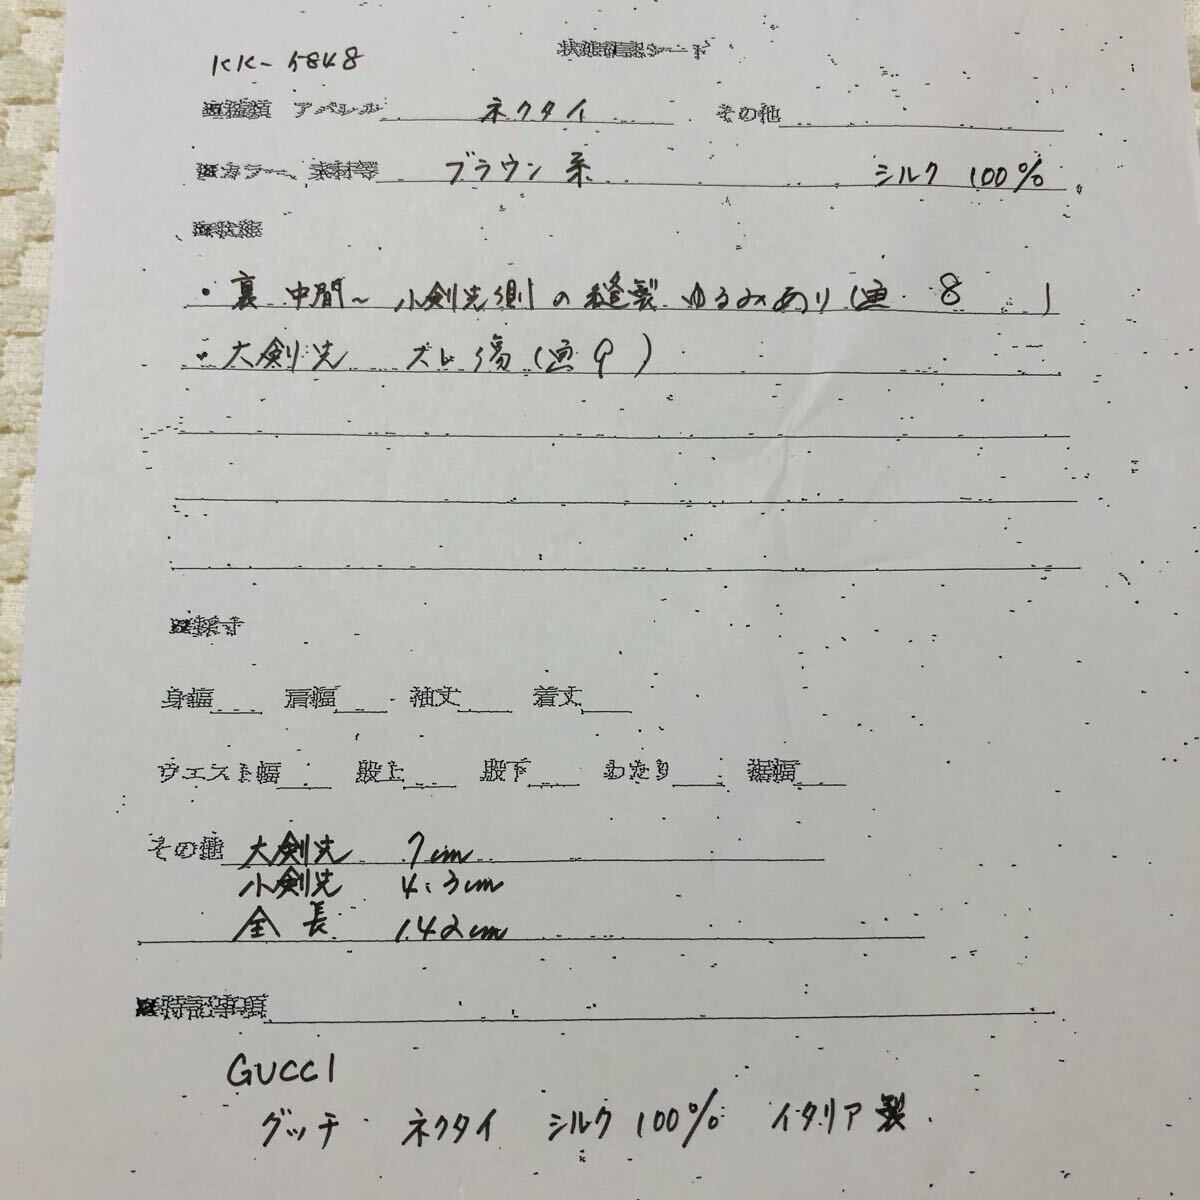 状態確認シート
KK-5848
■種類 アパレル ネクタイ その他
■カラー、素材等 ブラウン系 シルク 100%
■状態
・裏 中間~小剣先側の縫製 ゆるみあり(画 8 )
・大剣先 スレ傷(画9)
■採寸
身幅 肩幅 袖丈 着丈
ウエスト幅 股上 股下 わたり 裾幅
その他 大剣先 7cm
小剣先 4.3cm
全長 142cm
■特記事項
GUCCI
グッチ ネクタイ シルク100% イタリア製